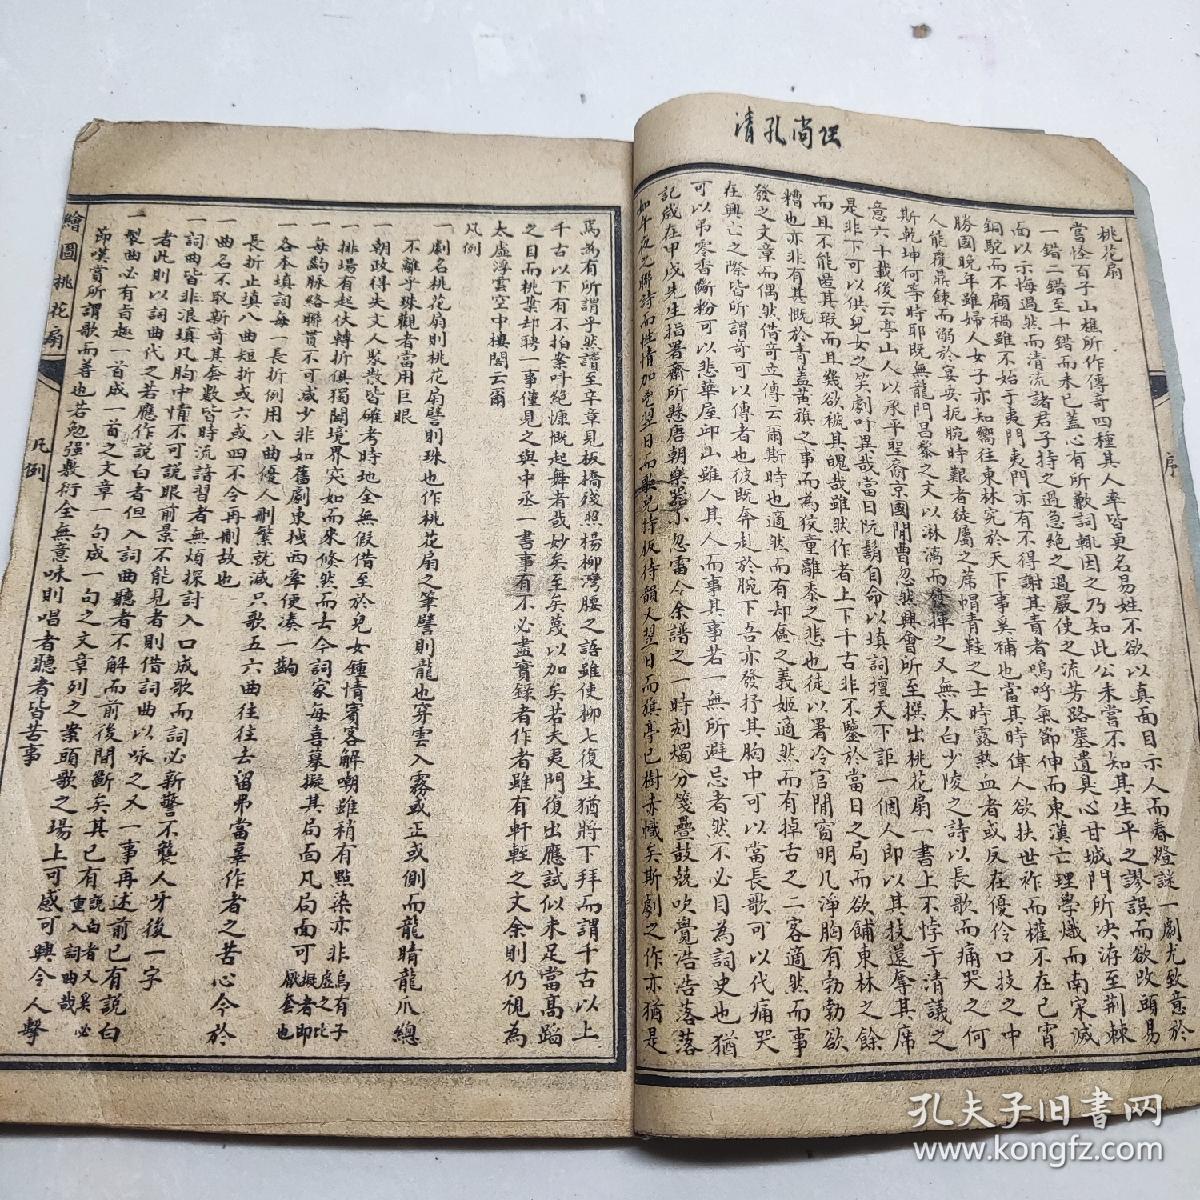 清孔尚任
序
桃花扇
嘗怪百子山樵所作傳奇四種其人率皆更名易姓不欲以真面目示人而春燈謎一劇尤致意於
一錯二錯至十錯而未已蓋心有所歉詞輒因之乃知此公未嘗不知其生平之謬誤而欲改頭易
面以示悔過然而清流諸君子持之過急絕之過嚴使之流芳路塞遺臭心甘城門所決洊至荊棘
銅駝而不顧禍雖不始于夷門夷門亦有不得謝其責者嗚呼氣節伸而東漢亡理學熾而南宋滅
勝國晚年雖婦人女子亦知嚮往東林究於天下事奚補也當其時偉人欲扶世祚而權不在已宵
人能覆鼎餗而溺於宴安扼腕時艱者徒屬之席帽青鞋之士時露熱血者或反在優伶口技之中
斯乾坤何等時耶既無龍門昌黎之文以淋漓而發揮之又無太白少陵之詩以長歌而痛哭之何
意六十載後云亭山人以承平聖裔京國閒曹忽然興會所至撰出桃花扇一書上不悖于清議之
是非下可以供兒女之笑劇吁異哉當日阮鬍自命以填詞擅天下詎一個人即以其技還奪其席
而且不能匿其瑕而且幾欲褫其魄哉雖然作者上下千古非不鑒於當日之局而欲餔東林之餘
糟也亦非有甚慨於青蓋黃旗之事而為狡童離黍之悲也徒以署冷官閒窗明几淨胸有勃勃欲
發之文章而偶然借奇立傳云爾斯時也適然而有却奩之義姬適然而有掉舌之二客適然而事
在興亡之際皆所謂奇可以傳者也彼既奔赴於腕下吾亦發抒其胸中可以當長歌可以代痛哭
可以弔零香斷粉可以悲華屋邱山雖人其人而事其事若一無所避忌者然不必目為詞史也猶
記歲在甲戌先生指署齋所懸唐朝樂器小忽雷令余譜之一時刻燭分箋疊鼓競吹覺浩浩落落
如午夜之聯詩而性情加鬯翌日而歌兒持板待韻又翌日而旗亭已樹赤幟矣斯劇之作亦猶是
焉為有所謂乎然讀至卒章見板橋殘照楊柳灣腰之語雖使柳七復生猶將下拜而謂千古以上
千古以下有不拍案叫絕慷慨起舞者哉妙矣至矣蔑以加矣若夫夷門復出應試似未足當高蹈
之目而桃葉却聘一事僅見之與中丞一書事有不必盡實錄者作者雖有軒輊之文余則仍視為
太虛浮雲空中樓閣云爾
凡例
一劇名桃花扇則桃花扇譬則珠也作桃花扇之筆譬則龍也穿雲入霧或正或側而龍睛龍爪總
不離乎珠觀者當用巨眼
一朝政得失文人聚散皆確考時地全無假借至於兒女鍾情賓客解嘲雖稍有點染亦非烏有子
一排場有起伏轉折俱獨闢境界突如而來倏然而去令詞家每喜摹擬其局面凡局面可擬者即虛之比戲套也
一每齣脈絡聯貫不可減少非如舊劇東拽西牽便湊一齣
一各本填詞每一長折例用八曲優人刪繁就減只歌五六曲往往去留弗當辜作者之苦心今於
長折止填八曲短折或六或四不令再刪故也
一曲名不取新奇其套數皆時流諳習者無煩探討入口成歌而詞必新警不襲人牙後一字
一詞曲皆非浪填凡胸中情不可說眼前景不能見者則借詞曲以咏之又一事再述前已有說白
者此則以詞曲代之若應作說白者但入詞曲聽者不解而前後間斷矣其已有說白者又奚必重入詞曲哉
一製曲必有旨趣一首成一首之文章一句成一句之文章列之案頭歌之場上可感可興令人擊
節嘆賞所謂歌而善也若勉強敷衍全無意味則唱者聽者皆苦事
繪圖桃花扇
凡例
孔夫子旧书网
www.kongfz.com